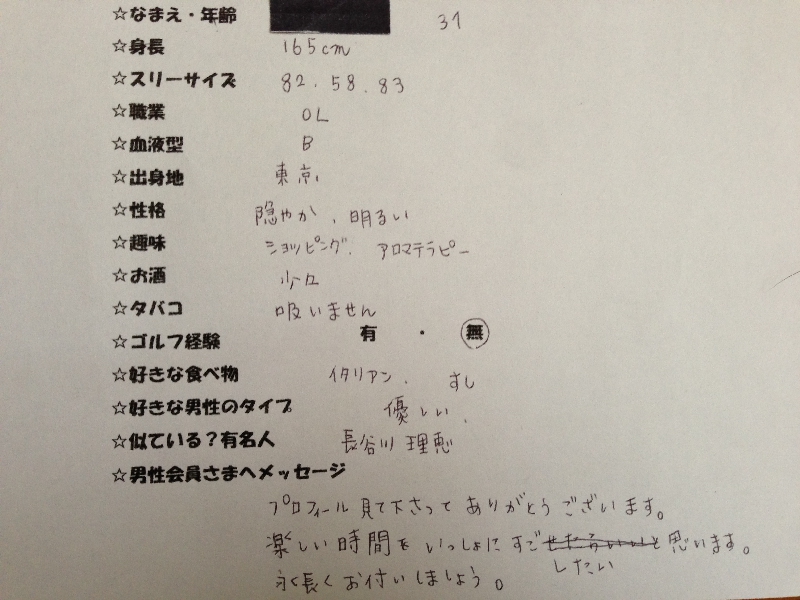 ☆なまえ・年齢 31
☆身長 165cm
☆スリーサイズ 82.58.83
☆職業 OL
☆血液型 B
☆出身地 東京
☆性格 隠やか、明るい
☆趣味 ショッピング、アロマテラピー
☆お酒 少々
☆タバコ 吸いません
☆ゴルフ経験 有・無
☆好きな食べ物 イタリアン、すし
☆好きな男性のタイプ 優しい、
☆似ている?有名人 長谷川理恵
☆男性会員さまへメッセージ
プロフィール見て下さってありがとうございます。
楽しい時間をいっしょにすごせたらいいと思います。
したい
永く長くお付いしましょう。